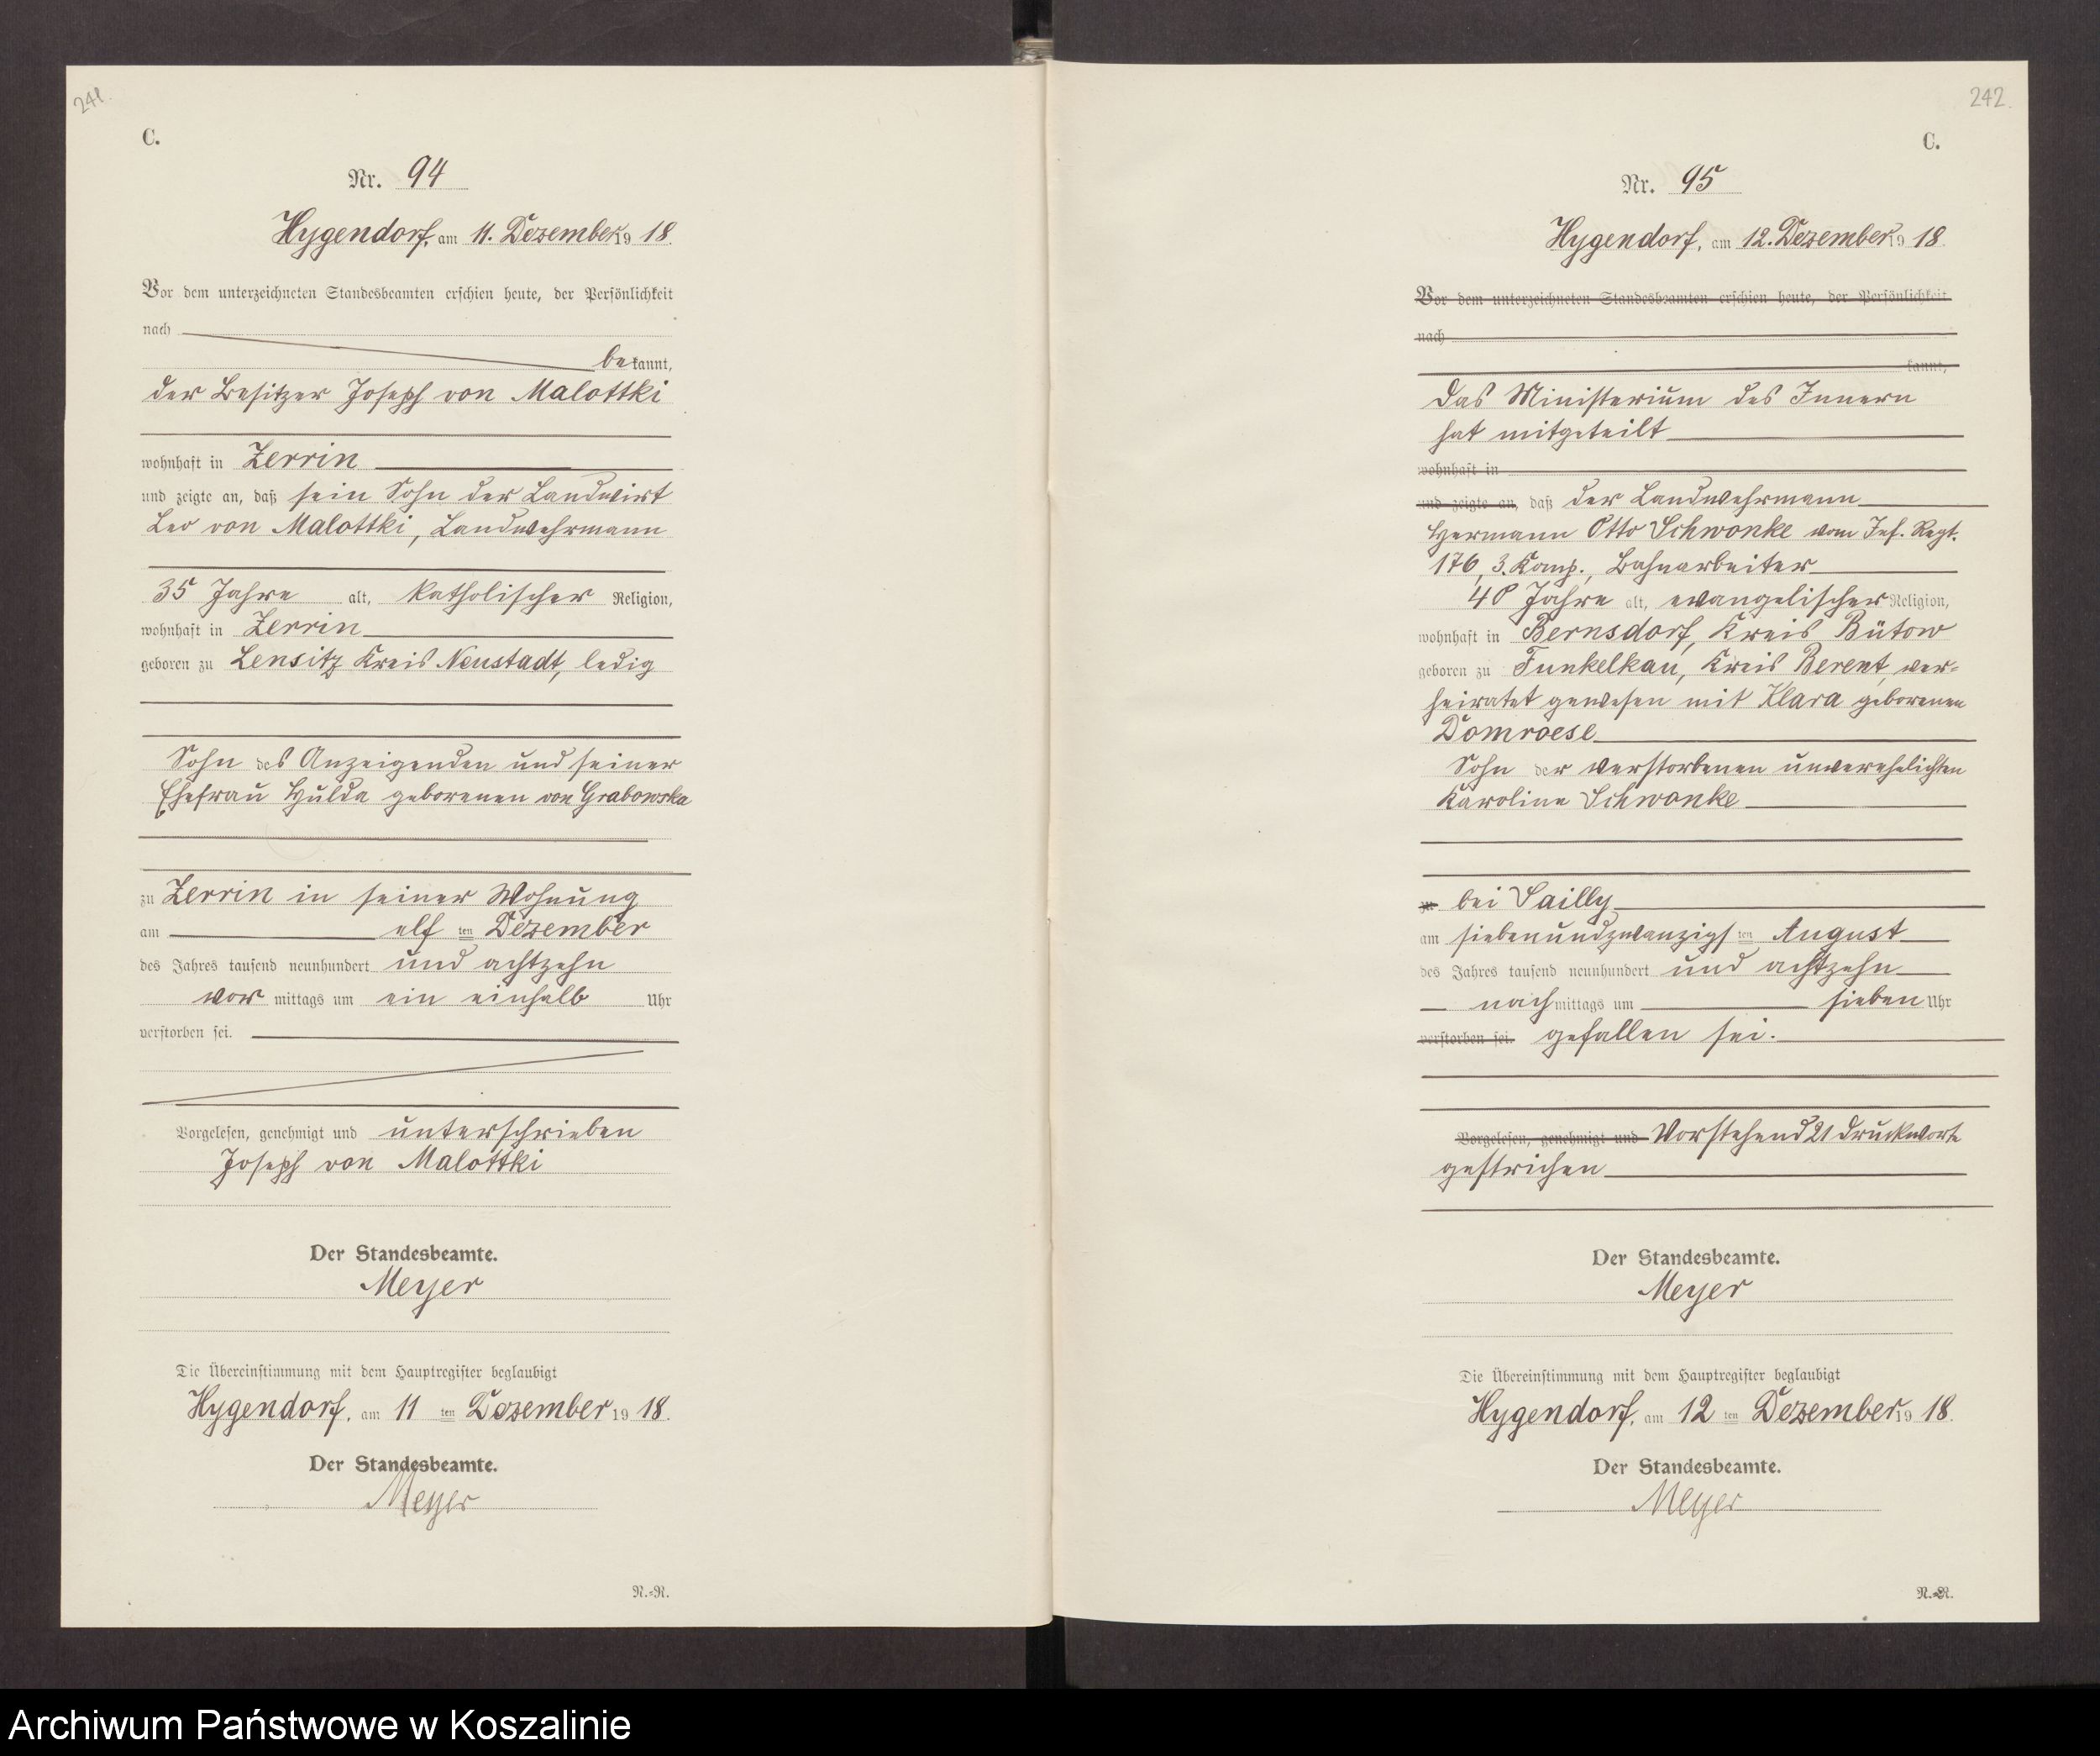 241.
C.
Nr. 94
Hygendorf, am 11. Dezember 1918.
Vor dem unterzeichneten Standesbeamten erschien heute, der Persönlichkeit
nach
bekannt,
der Besitzer Joseph von Malottki
wohnhaft in Zerrin
und zeigte an, daß sein Sohn der Landwirt
Leo von Malottki, Landwehrmann
35 Jahre alt, katholischer Religion,
wohnhaft in Zerrin
geboren zu Lensitz Kreis Neustadt, ledig
Sohn des Anzeigenden und seiner
Ehefrau Hulda geborenen von Grabowska
zu Zerrin in seiner Wohnung
am elf ten Dezember
des Jahres tausend neunhundert und achtzehn
vor mittags um ein einhalb Uhr
verstorben sei.
Vorgelesen, genehmigt und unterschrieben
Joseph von Malottki
Der Standesbeamte.
Meyer
Die Übereinstimmung mit dem Hauptregister beglaubigt
Hygendorf, am 11 ten Dezember 1918.
Der Standesbeamte.
Meyer
N.=R.
242.
C.
Nr. 95
Hygendorf, am 12. Dezember 1918.
Vor dem unterzeichneten Standesbeamten erschien heute, der Persönlichkeit
nach
kannt,
Das Ministerium des Innern
hat mitgeteilt
wohnhaft in
und zeigte an, daß der Landwehrmann
Hermann Otto Schwonke vom Inf. Regt.
176, 3. Komp., Bahnarbeiter
40 Jahre alt, evangelischer Religion,
wohnhaft in Bernsdorf, Kreis Bütow
geboren zu Funkelkau, Kreis Berent, ver=
heiratet gewesen mit Klara geborenen
Domroese
Sohn der verstorbenen unverehelichten
Karoline Schwonke
zu bei Sailly
am siebenundzwanzigsten August
des Jahres tausend neunhundert und achtzehn
nachmittags um sieben Uhr
verstorben sei. gefallen sei.
Vorgelesen, genehmigt und Vorstehend 21 Druckworte
gestrichen
Der Standesbeamte.
Meyer
Die Übereinstimmung mit dem Hauptregister beglaubigt
Hygendorf, am 12 ten Dezember 1918.
Der Standesbeamte.
Meyer
N.=R.
Archiwum Państwowe w Koszalinie